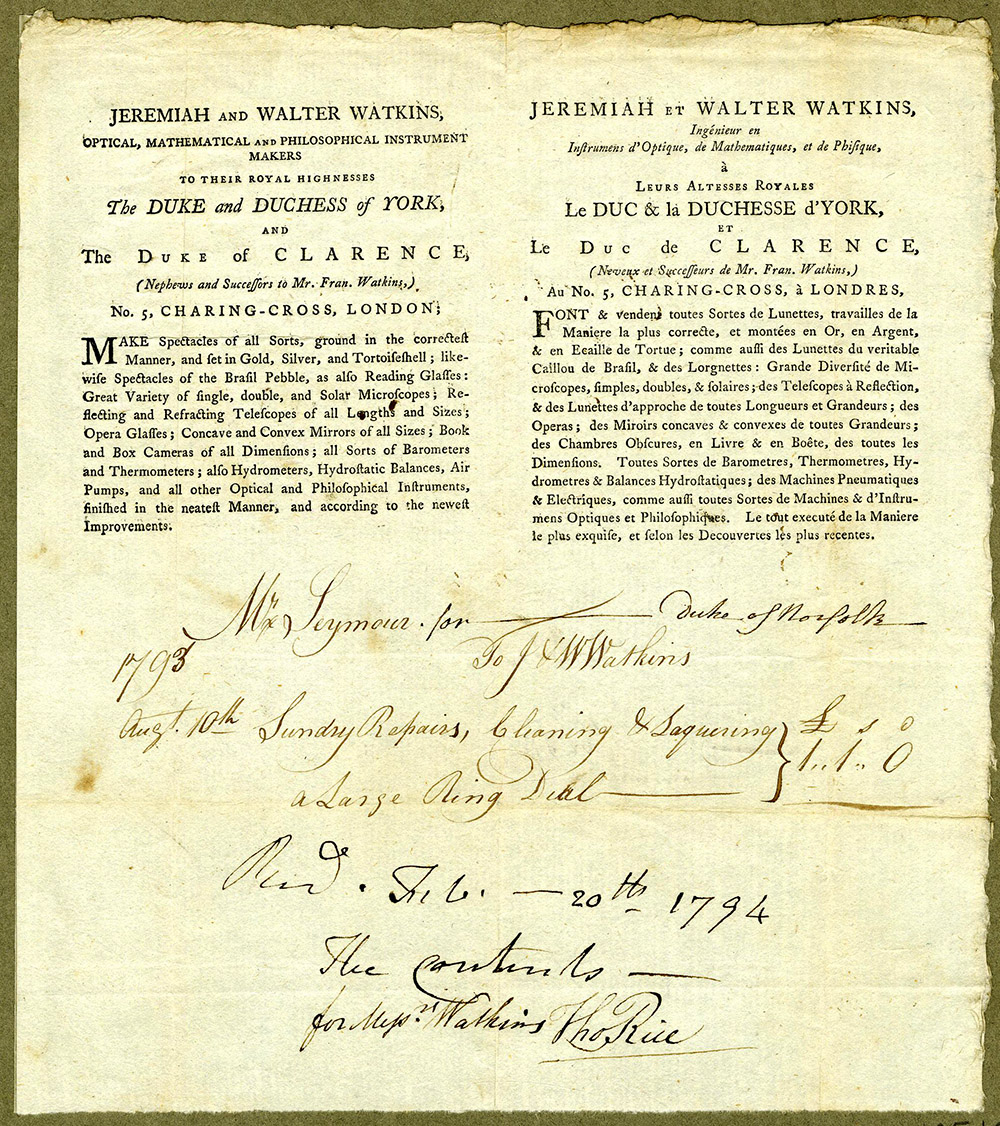 JEREMIAH AND WALTER WATKINS,
OPTICAL, MATHEMATICAL AND PHILOSOPHICAL INSTRUMENT
MAKERS
TO THEIR ROYAL HIGHNESSES
The DUKE and DUCHESS of YORK,
AND
The DUKE of CLARENCE,
(Nephews and Succeſſors to Mr. Fran. Watkins,)
No. 5, CHARING-CROSS, LONDON;
MAKE Spectacles of all Sorts, ground in the correcteſt
Manner, and ſet in Gold, Silver, and Tortoiſeſhell; like-
wiſe Spectacles of the Braſil Pebble, as alſo Reading Glaſſes:
Great Variety of ſingle, double, and Solar Microſcopes; Re-
flecting and Refracting Teleſcopes of all Lengths and Sizes;
Opera Glaſſes; Concave and Convex Mirrors of all Sizes; Book
and Box Cameras of all Dimenſions; all Sorts of Barometers
and Thermometers; alſo Hydrometers, Hydroſtatic Balances, Air
Pumps, and all other Optical and Philoſophical Inſtruments,
finiſhed in the neateſt Manner, and according to the neweſt
Improvements.
JEREMIAH ET WALTER WATKINS,
Ingénieur en
Inſtrumens d'Optique, de Mathematiques, et de Phiſique,
à
LEURS ALTESSES ROYALES
Le DUC & la DUCHESSE d'YORK,
ET
Le DUC de CLARENCE,
(Neveux et Succeſſeurs de Mr. Fran. Watkins,)
Au No. 5, CHARING-CROSS, à LONDRES,
FONT & vendent toutes Sortes de Lunettes, travailles de la
Maniere la plus correcte, et montées en Or, en Argent,
& en Ecaille de Tortue; comme auſſi des Lunettes du veritable
Caillou de Braſil, & des Lorgnettes: Grande Diverſité de Mi-
croſcopes, ſimples, doubles, & ſolaires; des Teleſcopes à Reflection,
& des Lunettes d'approche de toutes Longueurs et Grandeurs; des
Operas; des Miroirs concaves & convexes de toutes Grandeurs;
des Chambres Obſcures, en Livre & en Boête, des toutes les
Dimenſions. Toutes Sortes de Barometres, Thermometres, Hy-
drometres & Balances Hydroſtatiques; des Machines Pneumatiques
& Electriques, comme auſſi toutes Sortes de Machines & d'Inſtru-
mens Optiques et Philoſophiques. Le tout executé de la Maniere
le plus exquiſe, et ſelon les Decouvertes les plus recentes.
Mr Seymour for Duke of Norfolk
1793 To J & W Watkins
Augt. 10th Sundry Repairs, Cleaning & Laquering } £ s d
a Large Ring Dial 1 . 1 . 0
Recd. Feb. — 20th 1794
The contents —
for Messrs Watkins Tho Rice